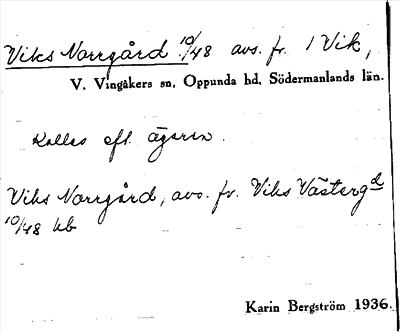 Viks Norrgård 10/48 avs. fr. 1 Vik,
V. Vingåkers sn, Oppunda hd, Södermanlands län.
Kallas eft. ägaren.
Viks Norrgård, avs. fr. Viks Västergd
10/48 kb
Karin Bergström 1936.